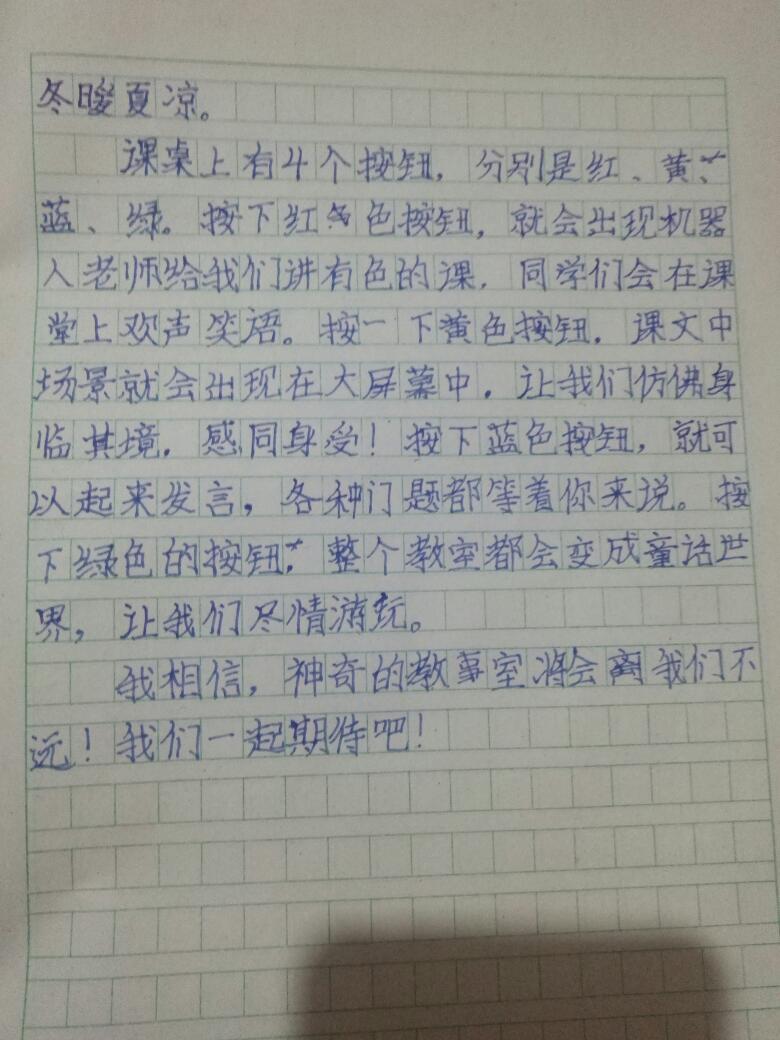 冬暖夏凉。
课桌上有4个按钮，分别是红、黄、
蓝、绿。按下红色按钮，就会出现机器
人老师给我们讲有色的课，同学们会在课
堂上欢声笑语。按一下黄色按钮，课文中
场景就会出现在大屏幕中，让我们仿佛身
临其境，感同身受！按下蓝色按钮，就可
以起来发言，各种门题都等着你来说。按
下绿色的按钮，整个教室都会变成童话世
界，让我们尽情游玩。
我相信，神奇的教室将会离我们不
远！我们一起期待吧！